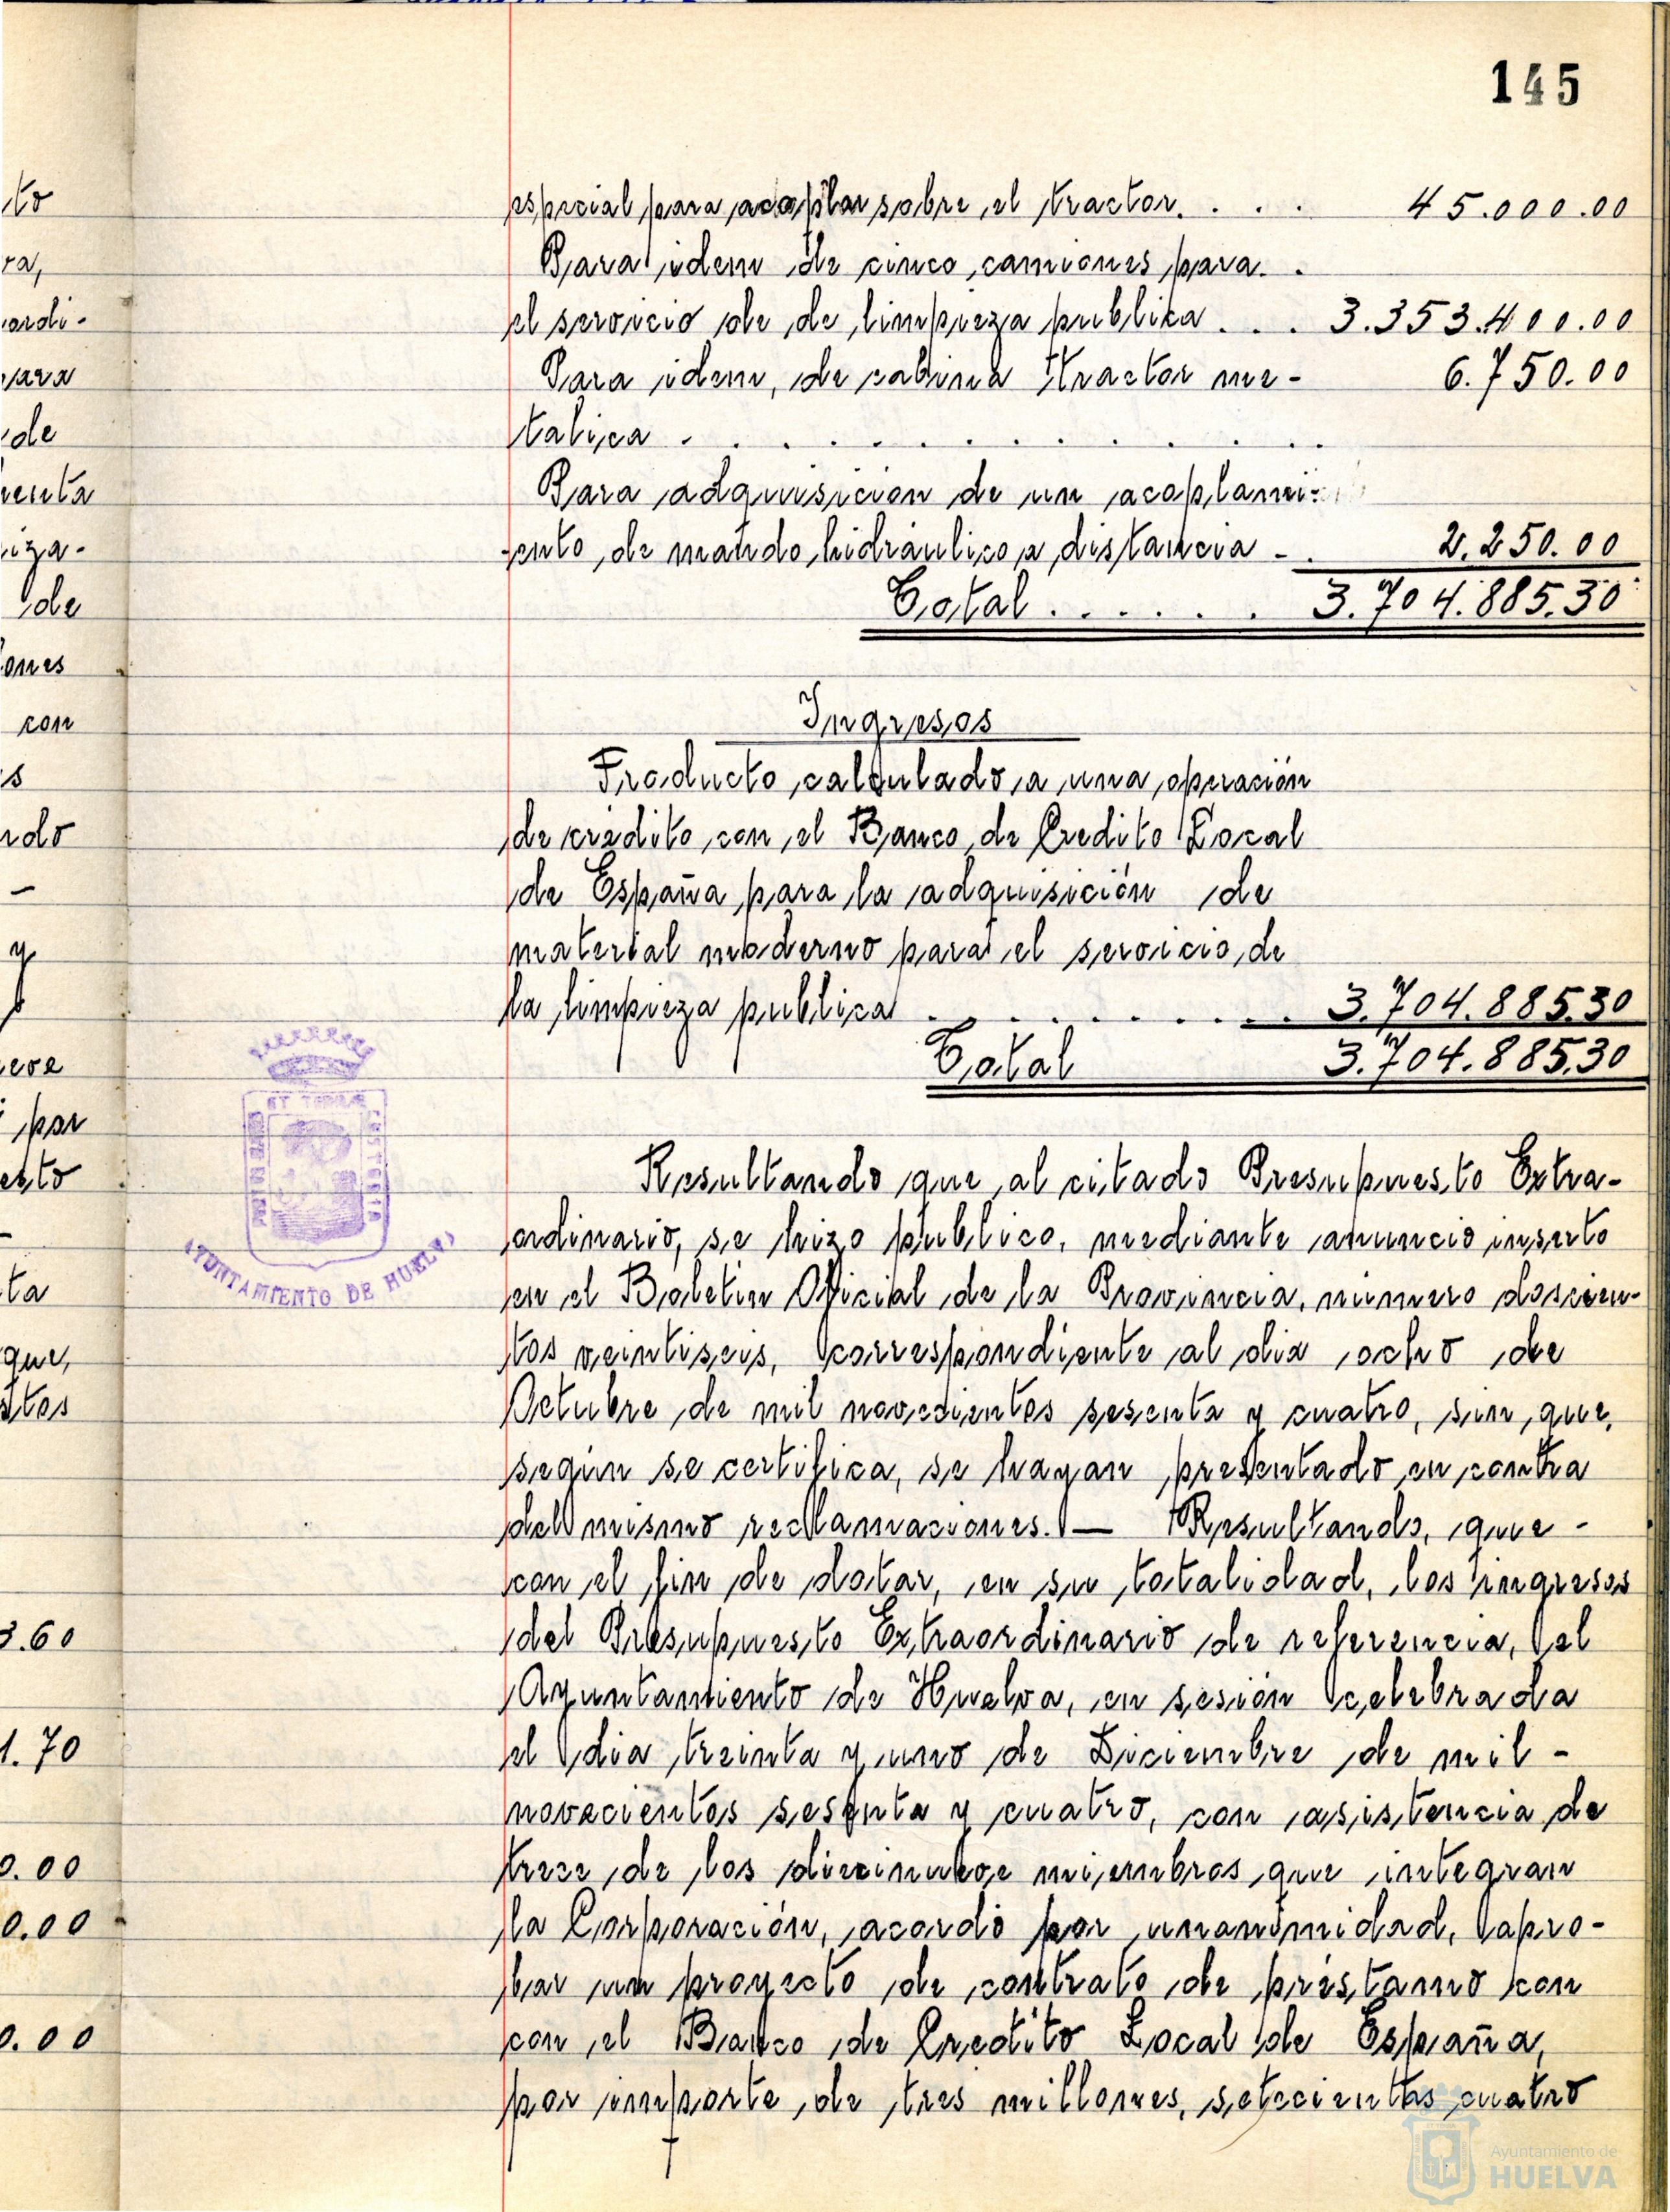 145
to
ra,
ordi-
para
de
uenta
iza-
de
ones
con
s
ndo
-
y
eve
por
esto
-
ta
que,
tos
3.60
1.70
0.00
0.00
0.00
especial para acoplar sobre el tractor. . . . 45.000.00
Para idem de cinco camiones para. .
el servicio de de limpieza publica . . . 3.353.400.00
Para idem, de cabina tractor me- 6.750.00
talica . . . . . . . . . . . .
Para adquisicion de un acoplami-
ento de mando hidráulico a distancia - . 2.250.00
Total . . . . . . 3.704.885.30
Ingresos
Producto calculado a una operación
de crédito con el Banco de Credito Local
de España para la adquisición de
material moderno para el servicio de
la limpieza publica . . . . . . . . . 3.704.885.30
Total 3.704.885.30
ET TERRÆ
AYUNTAMIENTO DE HUELVA
Resultando que al citado Presupuesto Extra-
ordinario, se hizo publico, mediante anuncio inserto
en el Boletin Oficial de la Provincia, numero doscien-
tos veintiseis, correspondiente al dia ocho de
Octubre de mil novecientos sesenta y cuatro, sin que,
segun se certifica, se hayan presentado en contra
del mismo reclamaciones. — Resultando, que -
con el fin de dotar, en su totalidad, los ingresos
del Presupuesto Extraordinario de referencia, el
Ayuntamiento de Huelva, en sesión celebrada
el dia treinta y uno de Diciembre de mil -
novecientos sesenta y cuatro, con asistencia de
trece de los diecinueve miembros que integran
la Corporación, acordó por unanimidad, apro-
bar un proyecto de contrato de préstamo con
con el Banco de Credito Local de España,
por importe de tres millones, setecientas cuatro
Ayuntamiento de
HUELVA